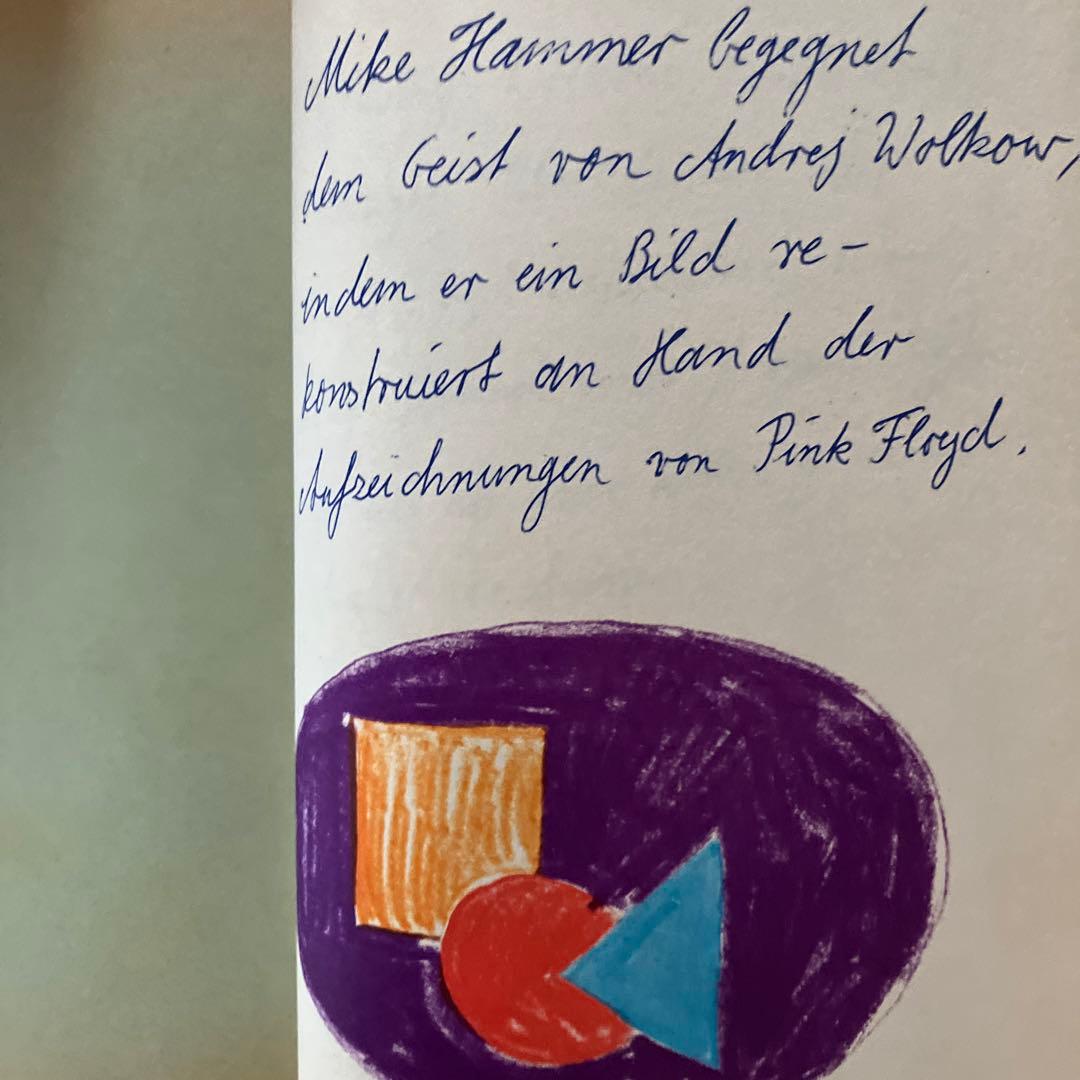 Mike Hammer begegnet
dem Geist von Andrej Wolkow,
indem er ein Bild re-
konstruiert an Hand der
Aufzeichnungen von Pink Floyd.